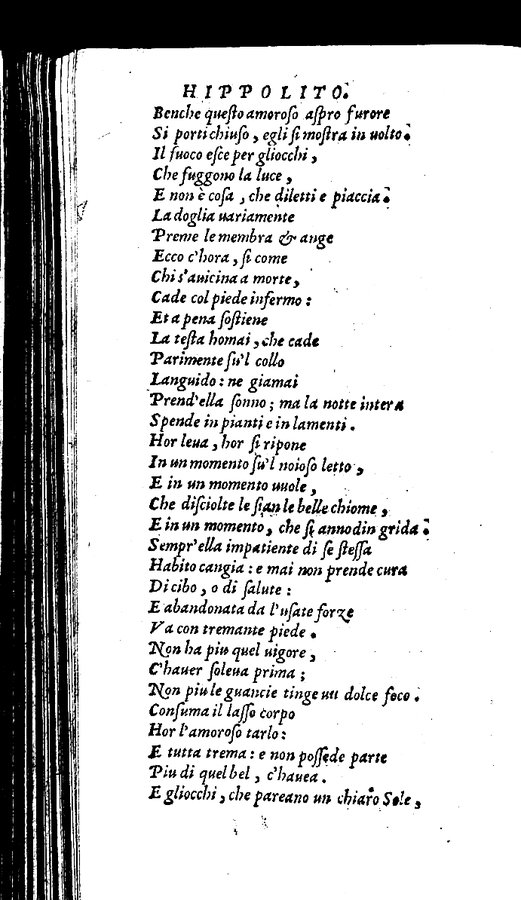 HIPPOLITO.
Benche queſto amoroſo aſpro furore
Si porti chiuſo, egli ſi moſtra in uolto.
Il fuoco eſce per gliocchi,
Che fuggono la luce,
E non è coſa, che diletti e piaccia.
La doglia uariamente
Preme le membra & ange
Ecco c'hora, ſi come
Chi s'auicina a morte,
Cade col piede infermo:
Et a pena ſoſtiene
La teſta homai, che cade
Parimente ſu'l collo
Languido: ne giamai
Prend'ella ſonno; ma la notte intera
Spende in pianti e in lamenti.
Hor leua, hor ſi ripone
In un momento ſu'l noioſo letto,
E in un momento uuole,
Che diſciolte le ſian le belle chiome,
E in un momento, che ſi annodin grida.
Sempr'ella impatiente di ſe ſteſſa
Habito cangia: e mai non prende cura
Di cibo, o di ſalute:
E abandonata da l'uſate forze
Va con tremante piede.
Non ha piu quel uigore,
C'hauer ſoleua prima;
Non piu le guancie tinge un dolce foco.
Conſuma il laſſo corpo
Hor l'amoroſo tarlo:
E tutta trema: e non poſſede parte
Piu di quel bel, c'hauea.
E gliocchi, che pareano un chiaro Sole,